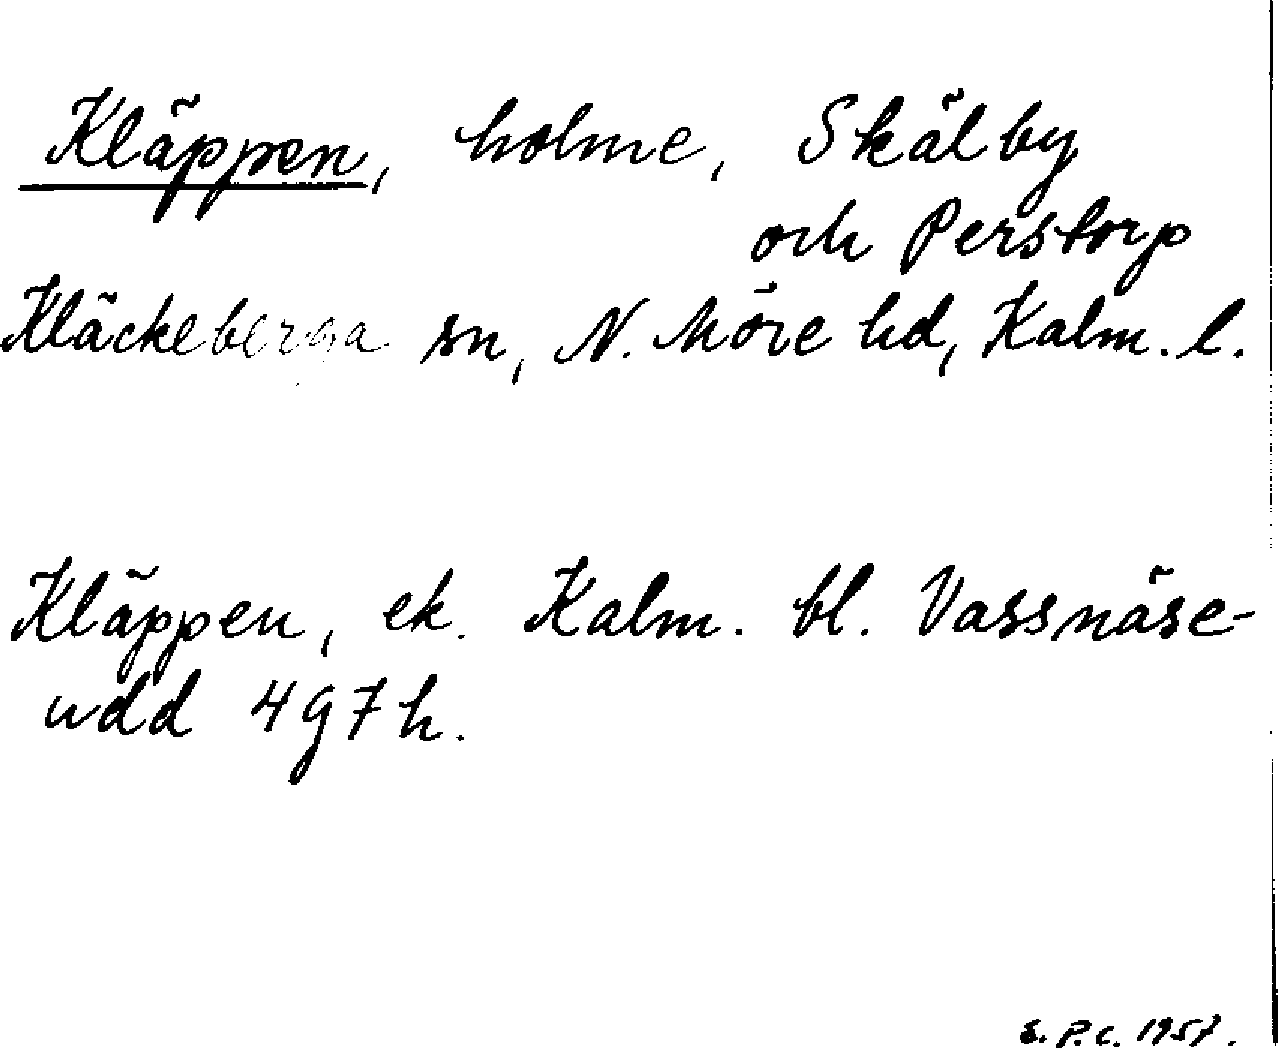 Kläppen, holme, Skälby
och Perstorp
Kläckeberga sn, N. Möre hd, Kalm. l.
Kläppen, ek. Kalm. bl. Vassnäse-
udd 4g7h.
S.P.C. 1957.